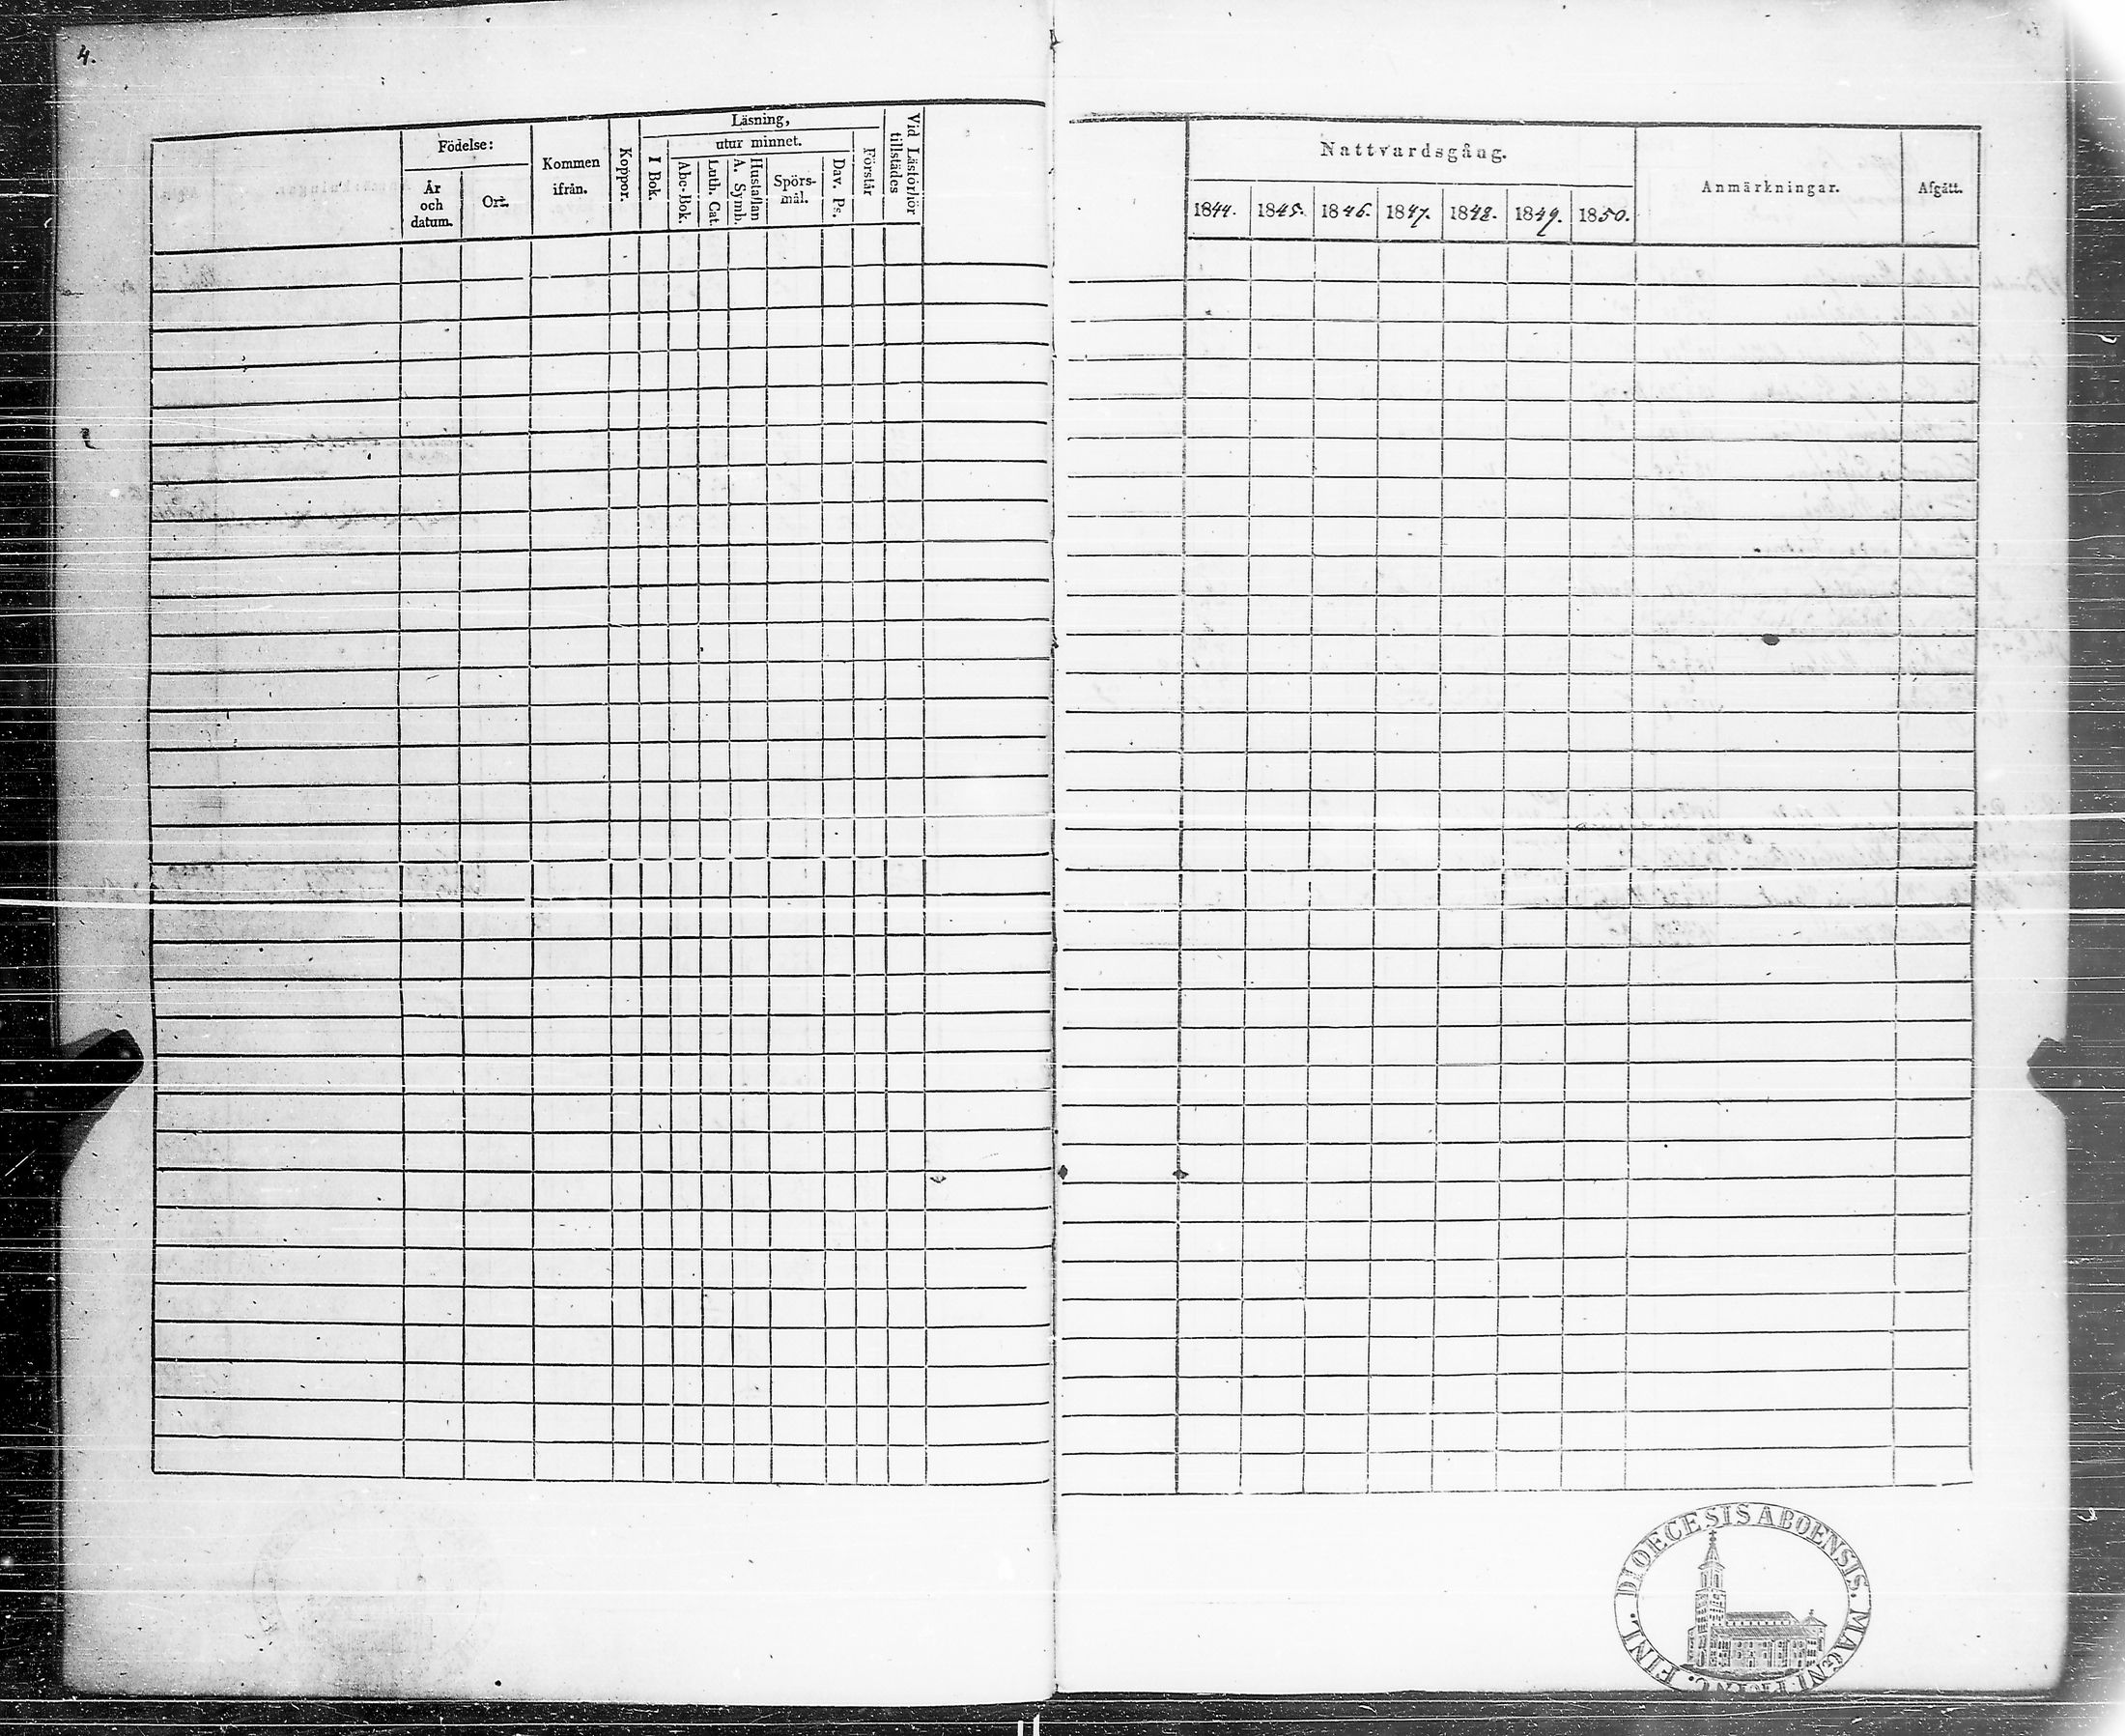 4.
Födelse:
År
och
datum.
Ort.
Kommen
ifrån.
Koppor.
Läsning,
I Bok.
utur minnet.
Abc-Bok.
Luth. Cat.
Hustaflan
A. Symb.
Spörs-
mål.
Dav. Ps.
Förstår
Vid Läsförhör
tillstädes
Nattvardsgång.
1844. 1845. 1846. 1847. 1848. 1849. 1850.
Anmärkningar.
Afgått.
DIOECESIS ABOENSIS. MAGNI FINL.